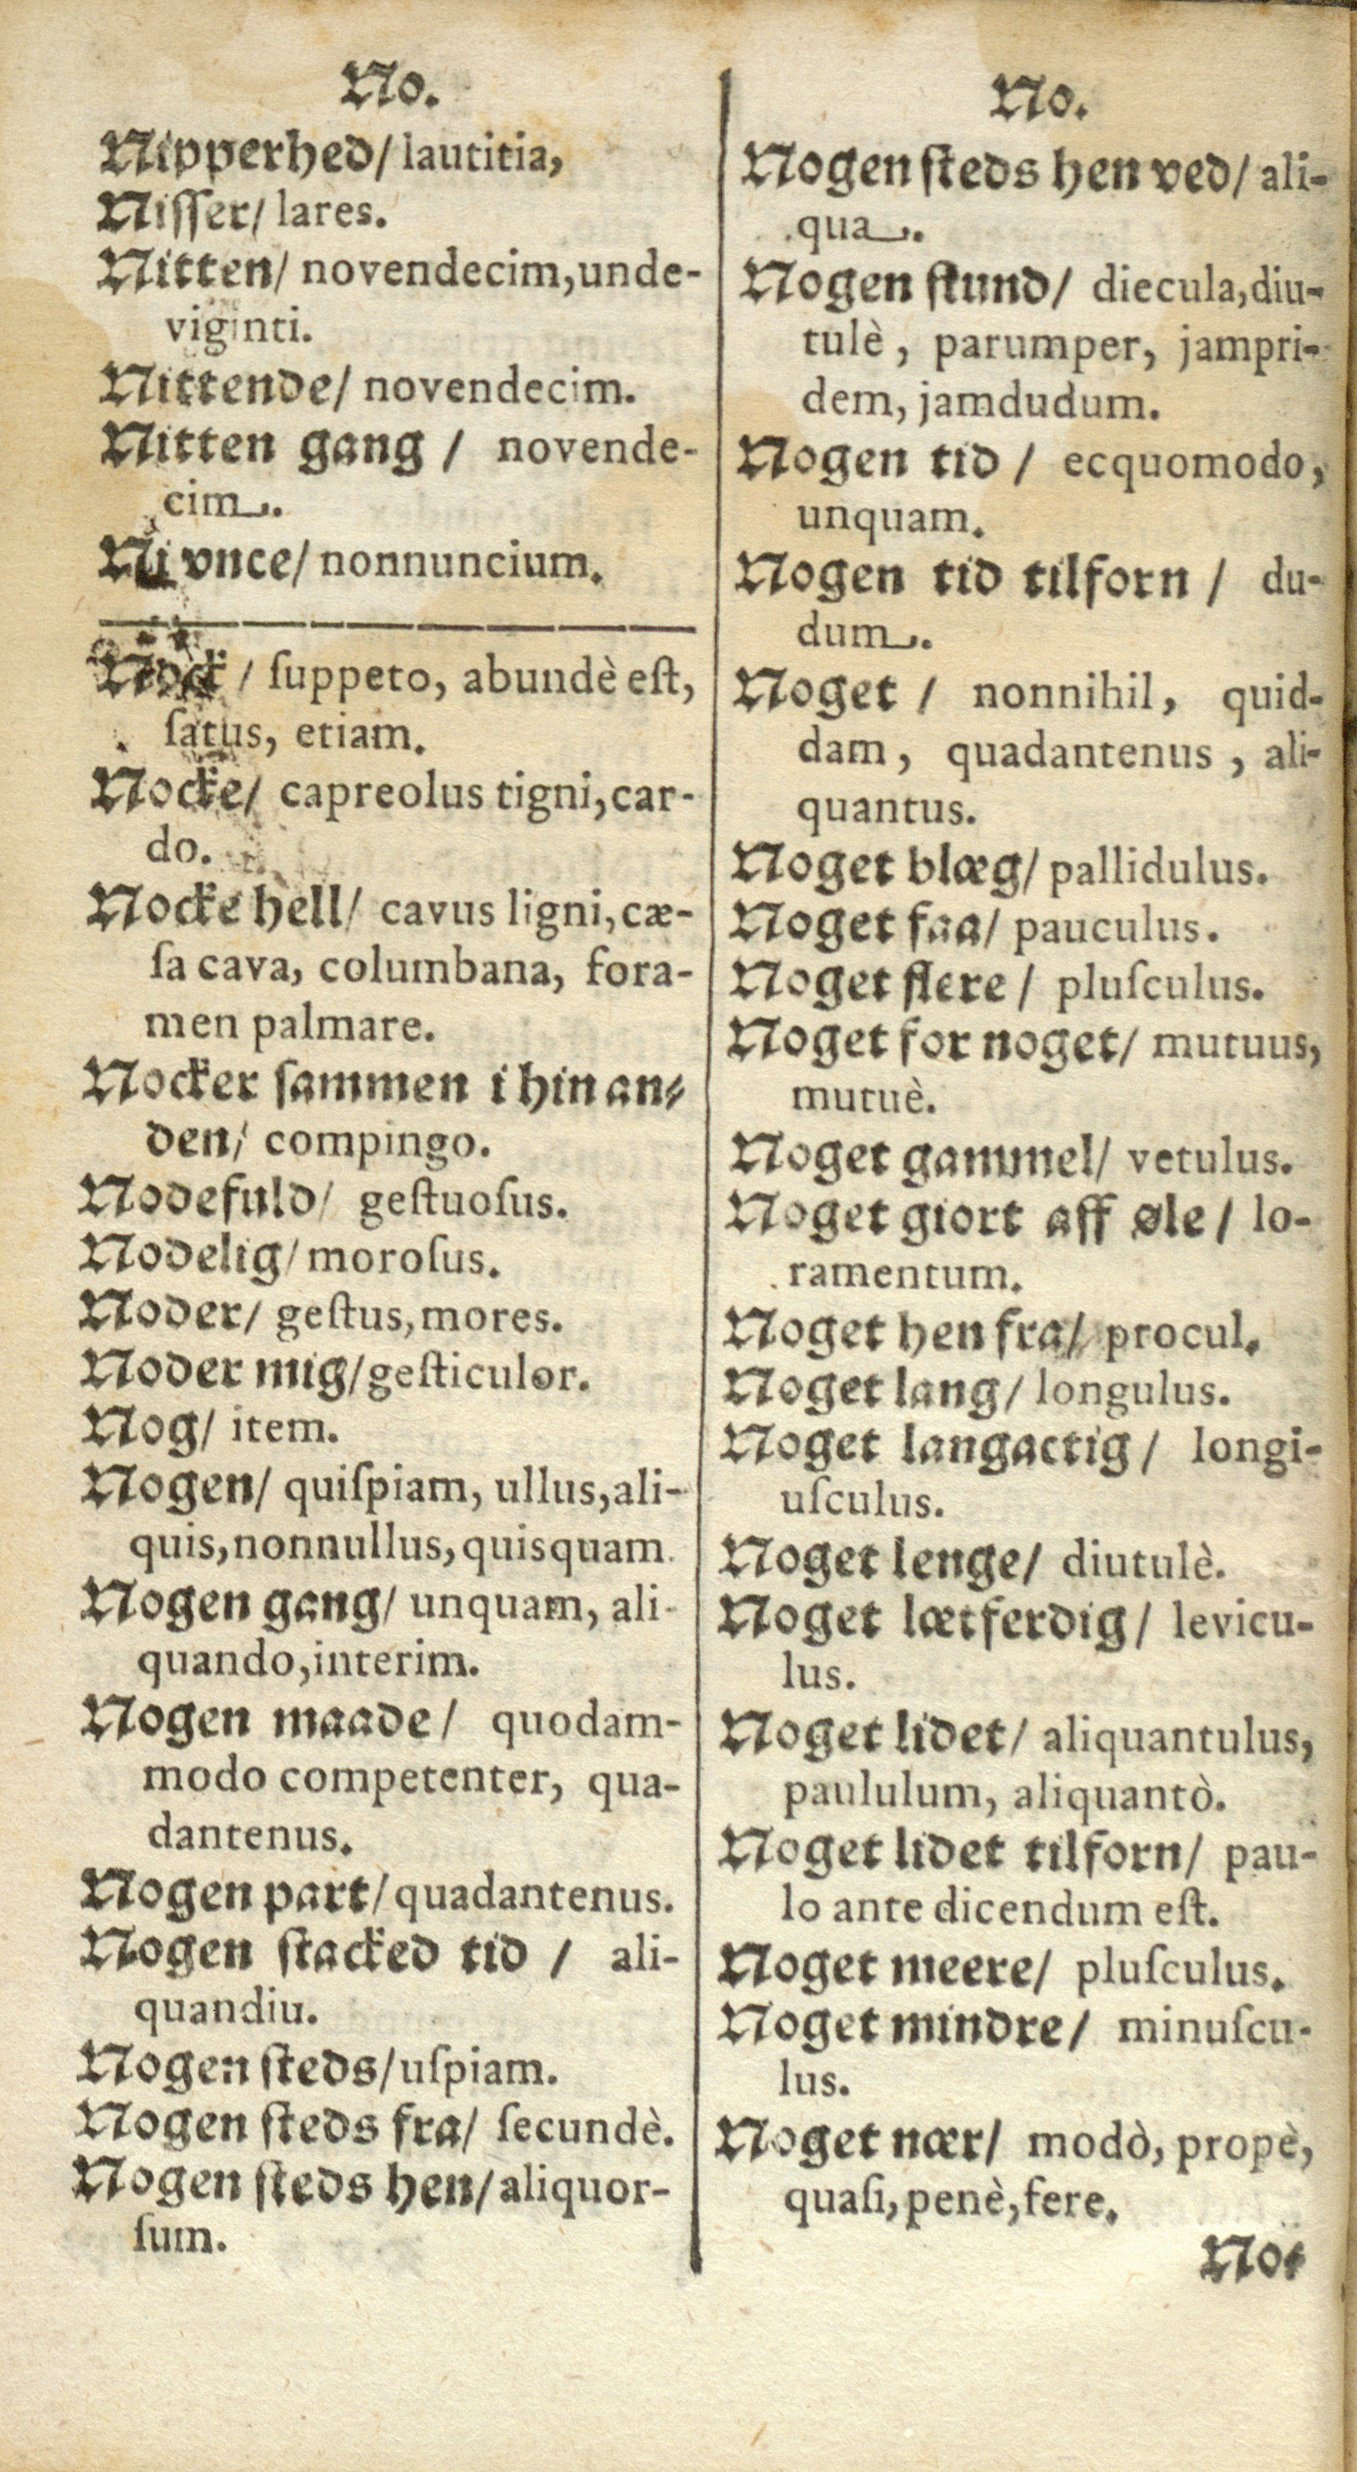 No.
Nipperhed/ lautitia,
Nisser/ lares.
Nitten/ novendecim, unde-
viginti.
Nittende/ novendecim.
Nitten gang / novende-
cim.
Ni vnce/ nonnuncium.
Nock / ſuppeto, abundè eſt,
ſatus, etiam.
Nocke/ capreolus tigni, car-
do.
Nocke hell/ cavus ligni, cæ-
ſa cava, columbana, fora-
men palmare.
Nocker sammen i hin an-
den/ compingo.
Nodefuld/ geſtuoſus.
Nodelig/ moroſus.
Noder/ geſtus, mores.
Noder mig/ geſticulor.
Nog/ item.
Nogen/ quiſpiam, ullus, ali-
quis, nonnullus, quisquam.
Nogen gang/ unquam, ali-
quando, interim.
Nogen maade/ quodam-
modo competenter, qua-
dantenus.
Nogen part/ quadantenus.
Nogen stacked tid / ali-
quandiu.
Nogen steds/ uſpiam.
Nogen steds fra/ ſecundè.
Nogen steds hen/ aliquor-
ſum.
No.
Nogen steds hen ved/ ali-
qua.
Nogen stund/ diecula, diu-
tulè, parumper, jampri-
dem, jamdudum.
Nogen tid / ecquomodo,
unquam.
Nogen tid tilforn / du-
dum.
Noget / nonnihil, quid-
dam, quadantenus, ali-
quantus.
Noget blæg/ pallidulus.
Noget faa/ pauculus.
Noget flere / pluſculus.
Noget for noget/ mutuus,
mutuè.
Noget gammel/ vetulus.
Noget giort aff øle / lo-
ramentum.
Noget hen fra/ procul.
Noget lang/ longulus.
Noget langactig / longi-
uſculus.
Noget lenge/ diutulè.
Noget lætferdig/ levicu-
lus.
Noget lidet/ aliquantulus,
paululum, aliquantò.
Noget lidet tilforn/ pau-
lo ante dicendum eſt.
Noget meere/ pluſculus.
Noget mindre/ minuſcu-
lus.
Noget nær/ modò, propè,
quaſi, penè, fere.
No-